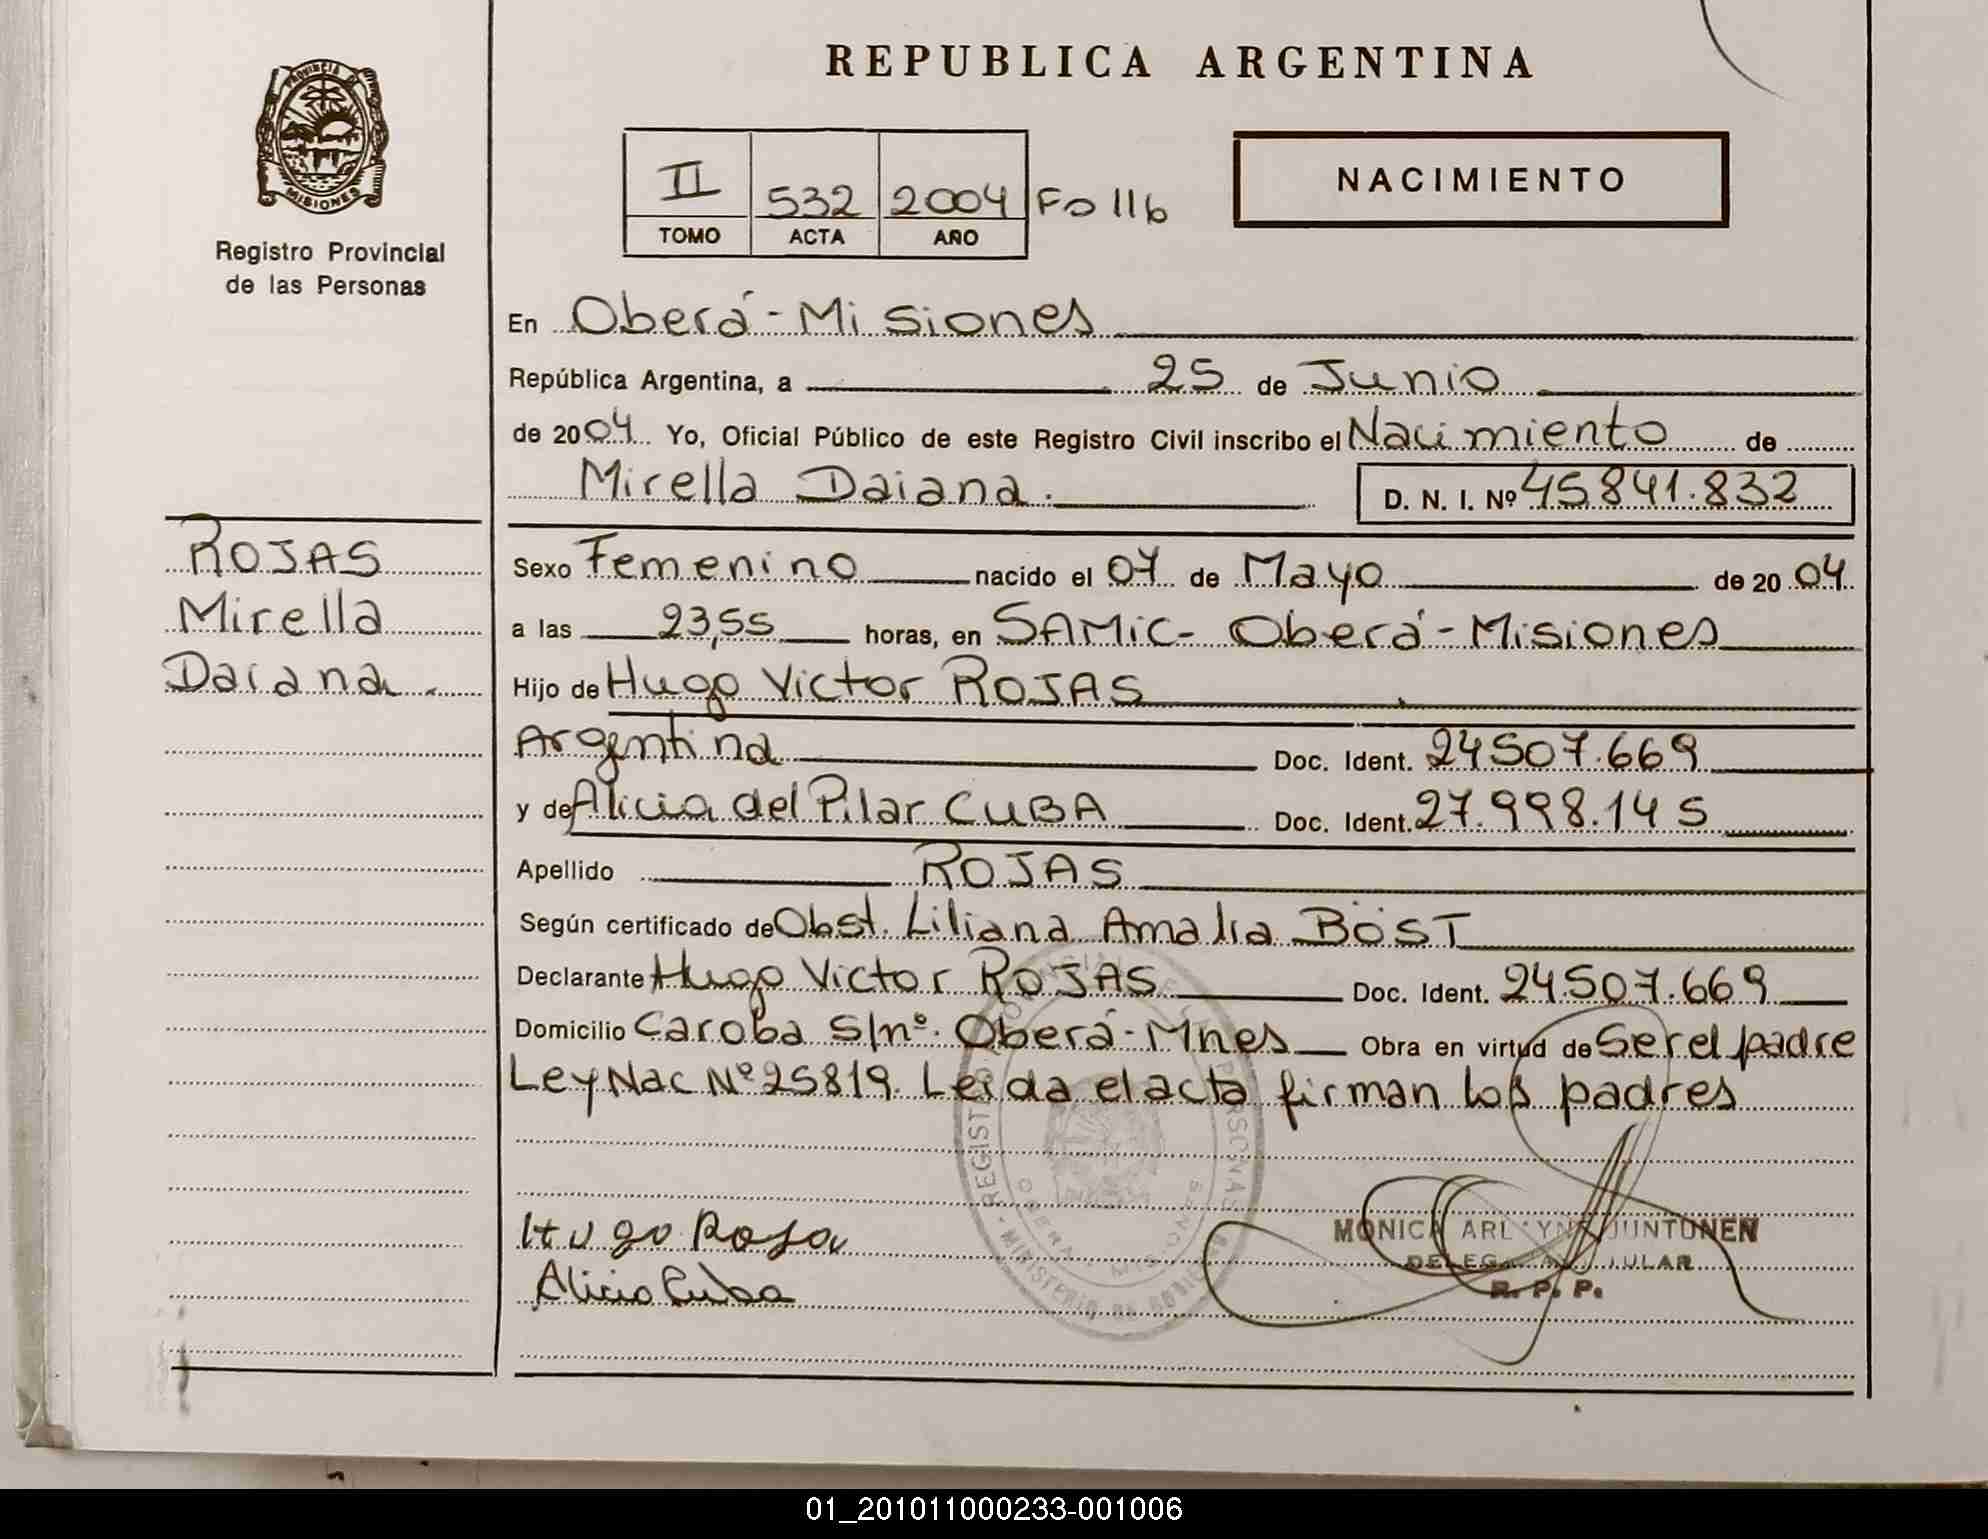 REPUBLICA ARGENTINA
PROVINCIA DE
MISIONES
Registro Provincial
de las Personas
II 532 2004 Fo 116
TOMO ACTA AÑO
NACIMIENTO
En Oberá - Misiones
República Argentina, a 25 de Junio
de 2004 Yo, Oficial Público de este Registro Civil inscribo el Nacimiento de
Mirella Daiana. D. N. I. Nº 45.841.832
ROJAS
Mirella
Daiana.
Sexo Femenino nacido el 07 de Mayo de 2004
a las 23,55 horas, en SAMIC- Oberá - Misiones
Hijo de Hugo Victor ROJAS
Argentina Doc. Ident. 24507.669
y de Alicia del Pilar CUBA Doc. Ident. 27.998.145
Apellido ROJAS
Según certificado de Obst. Liliana Amalia BÖST
Declarante Hugo Victor ROJAS Doc. Ident. 24.507.669
Domicilio Caroba S/nº. Oberá - Mnes Obra en virtud de Ser el padre
Ley Nac Nº 25819. Leida el acta firman los padres
Hugo Rosa
Alicia Cuba
MONICA JUNTUNEN
R. P. P.
01_201011000233-001006